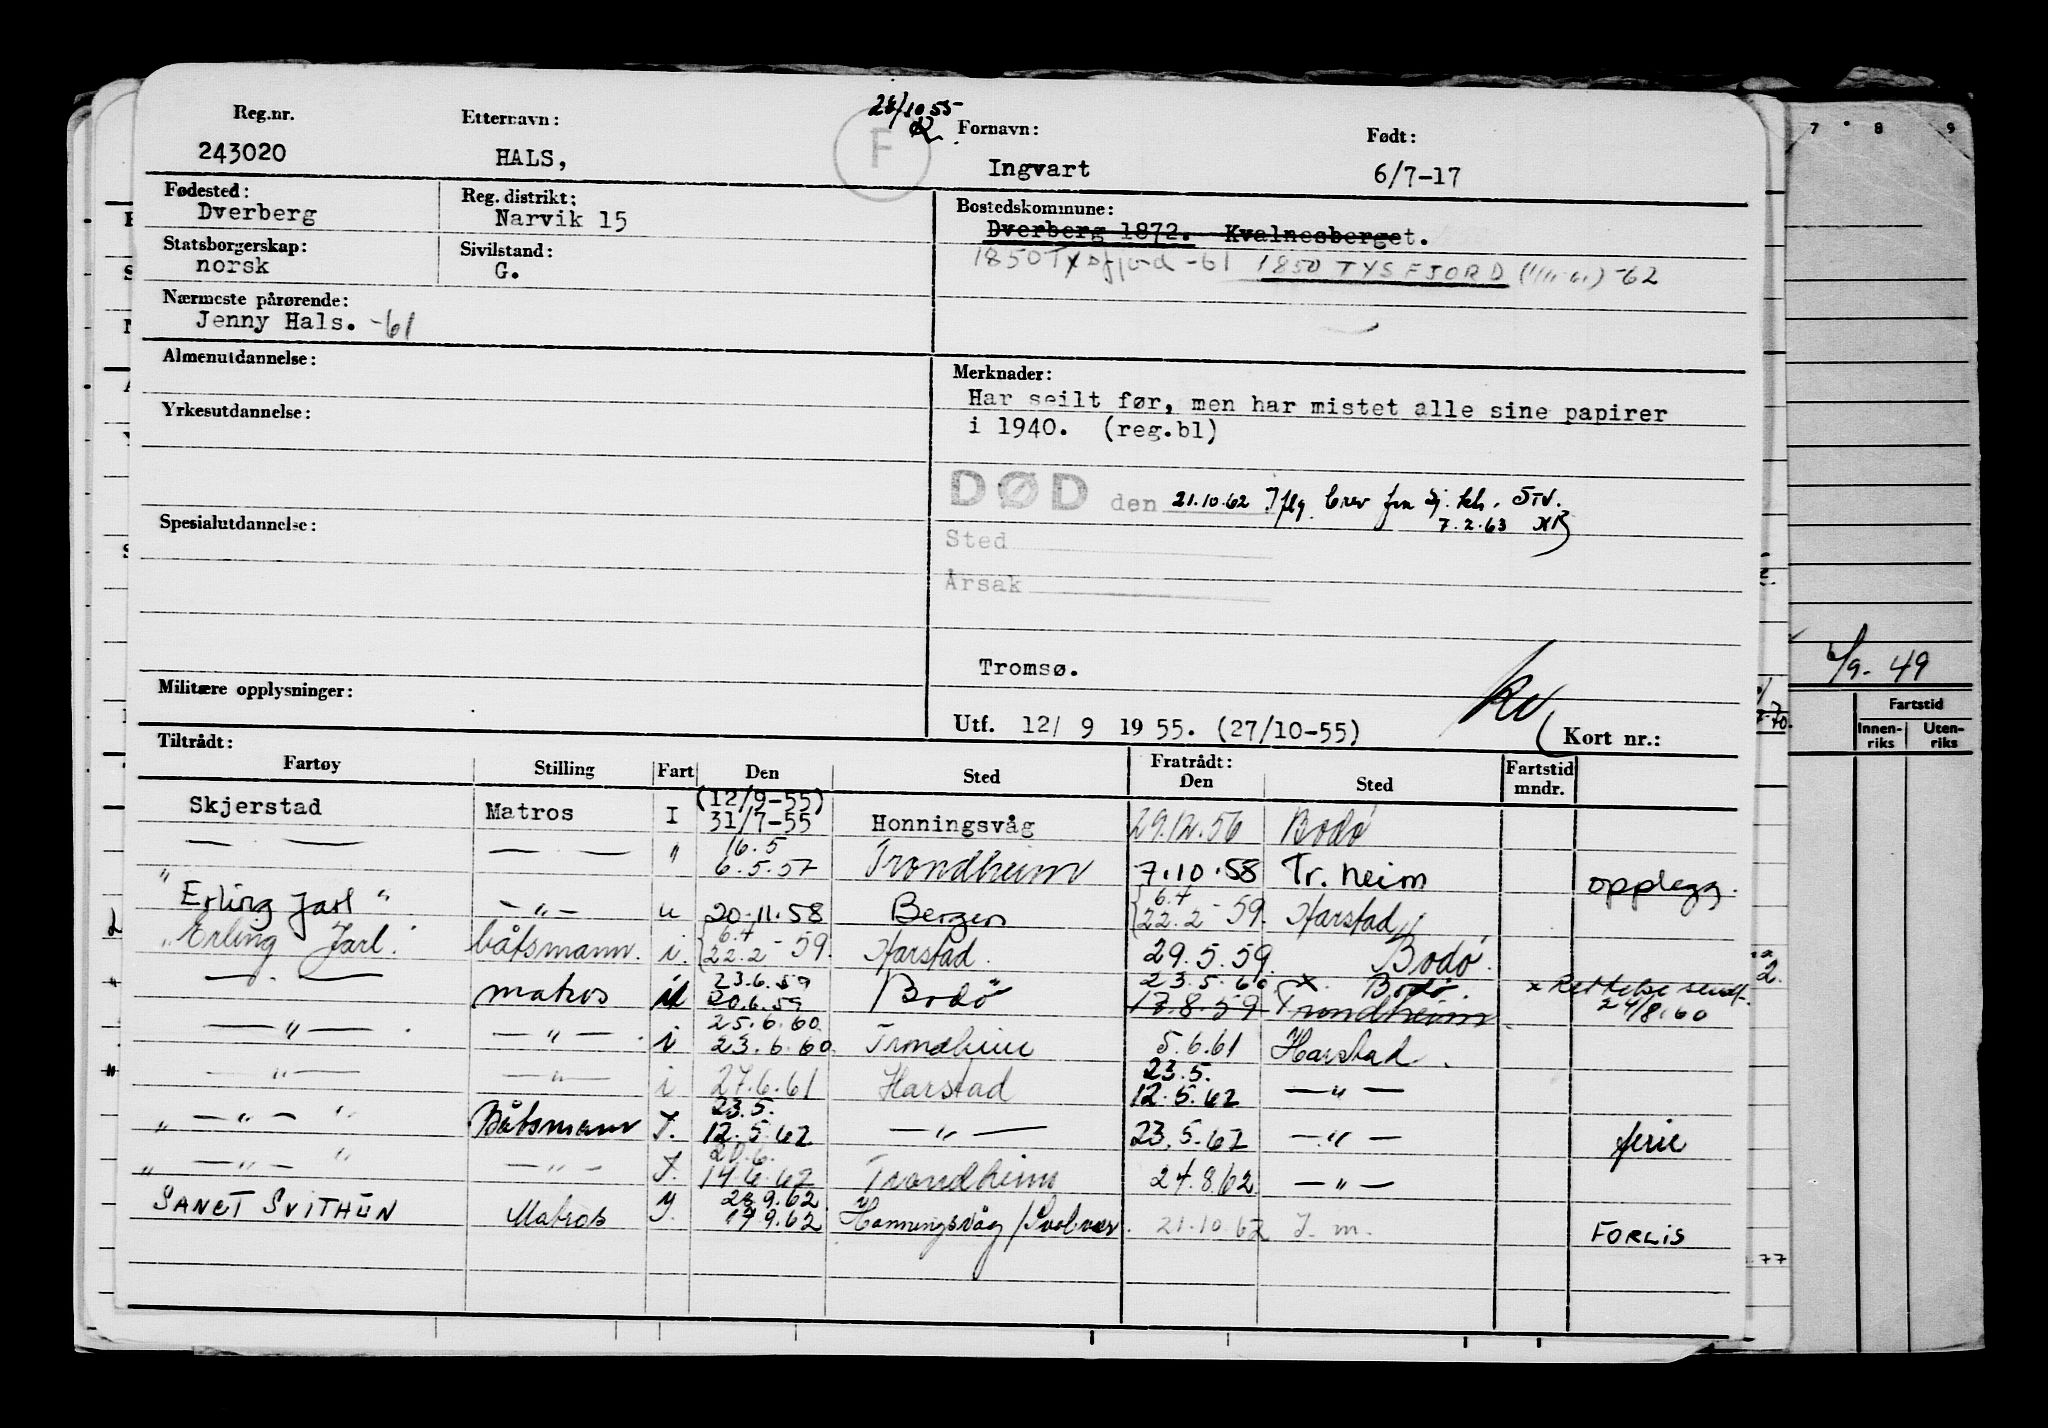 28/10 55
Reg.nr. Etternavn: F Fornavn: Født:
243020 HALS, Ingvart 6/7-17
Fødested: Reg. distrikt: Bostedskommune:
Dverberg Narvik 15 Dverberg 1872. Kvalnesberget.
Statsborgerskap: Sivilstand: 1850 Tysfjord -61 1850 TYSFJORD -62
norsk G.
Nærmeste pårørende:
Jenny Hals. -61
Almenutdannelse: Merknader:
Har seilt før, men har mistet alle sine papirer
Yrkesutdannelse: i 1940. (reg.bl)
DØD den 21.10.62 Iflg brev fra Sj. kh. STV.
7.2.63
Spesialutdannelse: Sted
Årsak
Tromsø.
Militære opplysninger:
Utf. 12/ 9 19 55. (27/10-55) Kort nr.:
Tiltrådt: Fratrådt:
Fartøy Stilling Fart Den Sted Den Sted Fartstid mndr.
(12/9-55)
Skjerstad Matros I 31/7-55 Honningsvåg 29.12.56 Bodø
16.5
— — — — " 6.5.57 Trondheim 7.10.58 Tr.heim opplegg.
"Erling Jarl" — " — u 20.11.58 Bergen { 6.4 22.2 - 59. Harstad
"Erling Jarl" båtsmann. i. { 6.4 22.2 - 59. Harstad. 29.5.59. Bodø.
23.6.59 23.5.60 x. Bodø. x Rettelse sendt
" — . — matros i 20.6.59 Bodø 17.8.59 Trondheim 24/8.60
25.6.60
— " — . — " — . i 23.6.60. Trondheim 5.6.61 Harstad.
23.5.
" — " — — " — i 27.6.61 Harstad 12.5.62 — " —
23.5.
" — " — " Båtsmann I. 12.5.62 — " — 23.5.62 — " — ferie
20.6.
" — " — " — " — I. 14.6.62 Trondheim 24.8.62 — " —
28.9.62
SANCT SVITHUN Matros I. 17.9.62 Honningsvåg / Svolvær. 21.10.62 I. m. FORLIS
7 8 9
6/9. 49
Fartstid
Innen-riks Uten-riks
70.
2.
77